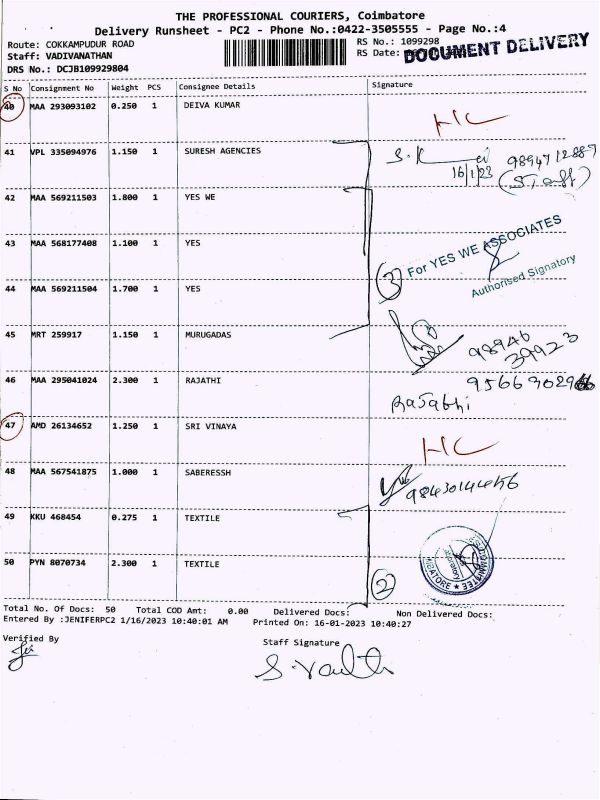 THE PROFESSIONAL COURIERS, Coimbatore
Delivery Runsheet - PC2 - Phone No.:0422-3505555 - Page No.:4
Route: COKKAMPUDUR ROAD
RS No.: 1099298
Staff: VADIVANATHAN
RS Date:
DOCUMENT DELIVERY
DRS No.: DCJB109929804
S No Consignment No Weight PCS Consignee Details Signature
40 MAA 293093102 0.250 1 DEIVA KUMAR
41 VPL 335094976 1.150 1 SURESH AGENCIES
16/1/23
9894712887
(Staff)
42 MAA 569211503 1.800 1 YES WE
43 MAA 568177408 1.100 1 YES
3 For YES WE ASSOCIATES
Authorised Signatory
44 MAA 569211504 1.700 1 YES
45 MRT 259917 1.150 1 MURUGADAS
98946
39923
46 MAA 295041024 2.300 1 RAJATHI
47 AMD 26134652 1.250 1 SRI VINAYA
48 MAA 567541875 1.000 1 SABERESSH
49 KKU 468454 0.275 1 TEXTILE
50 PYN 8070734 2.300 1 TEXTILE
2
Total No. Of Docs: 50 Total COD Amt: 0.00 Delivered Docs: Non Delivered Docs:
Entered By :JENIFERPC2 1/16/2023 10:40:01 AM Printed On: 16-01-2023 10:40:27
Verified By
Staff Signature